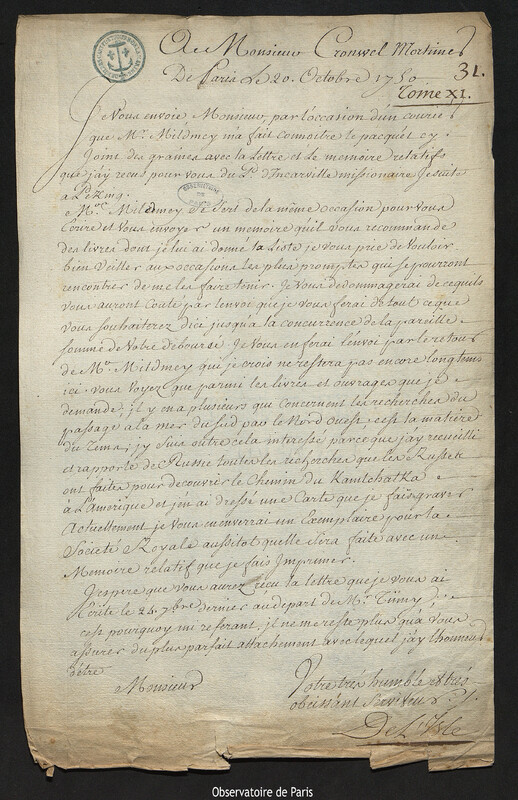 A Monsieur Cronwel Mortimer
De Paris Le 20. Octobre 1750
31.
Tome XI.
Je Vous envoie Monsieur, par l'occasion d'un courier
que Mr. Mildmey m'a fait connoitre le pacquet cy
Joint des graines avec la Lettre et Le memoire relatifs
que j'ay recus pour vous du P. d'Incarville missionaire Jesuite
a Peking.
OBSERVATOIRE
DE
PARIS
Mr. Mildmey se sert de la même occasion pour vous
Ecrire et vous envoyer un memoire qu'il vous recommande
des livres dont je lui ai donné la Liste je vous prie de vouloir
bien Veiller aux occasions les plus promptes qui se pourront
rencontrer de me les faire tenir. Je vous dedommagerai de ce qu'ils
vous auront Couté par l'envoi que je vous ferai de tout ce que
vous souhaiterez d'ici jusqu'a la concurrence de la pareille
somme de Votre debourse. Je vous en ferai l'envoi par le retour
de Mr. Mildmey qui je crois ne restera pas encore longtems
ici. vous voyez que parmi les livres et ouvrages que je
demande, il y en a plusieurs qui concernent les recherches du
passage a la mer du sud par le Nord Ouest. c'est la matiere
du tems; j'y suis outre cela interessé parce que j'ay recueilli
et rapporté de Russie toutes les recherches que les Russes
ont faites pour decouvrir le Chemin du Kamtchatka
à L'Amerique et j'en ai dressé une Carte que je fais graver
Actuellement je vous en enverrai un Exemplaire pour la
Société Royale aussitot qu'elle sera faite avec un
Memoire relatif que je fais Imprimer.
J'espere que vous aurez recu la lettre que je vous ai
Ecrite le 24. 7bre dernier au depart de Mr.
c'est pourquoy m'i referant, il ne me reste plus qu'à vous
assurer du plus parfait attachement avec lequel j'ay l'honneur
d'être
Monsieur
Votre trés humble & trés
obeissant Serviteur
De L'Isle
Observatoire de Paris